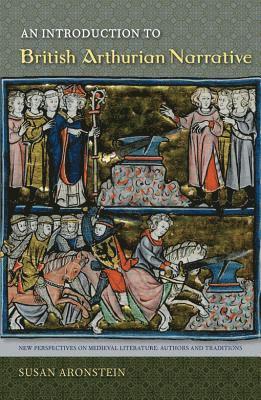 AN INTRODUCTION TO
British Arthurian Narrative
NEW PERSPECTIVES ON MEDIEVAL LITERATURE: AUTHORS AND TRADITIONS
SUSAN ARONSTEIN